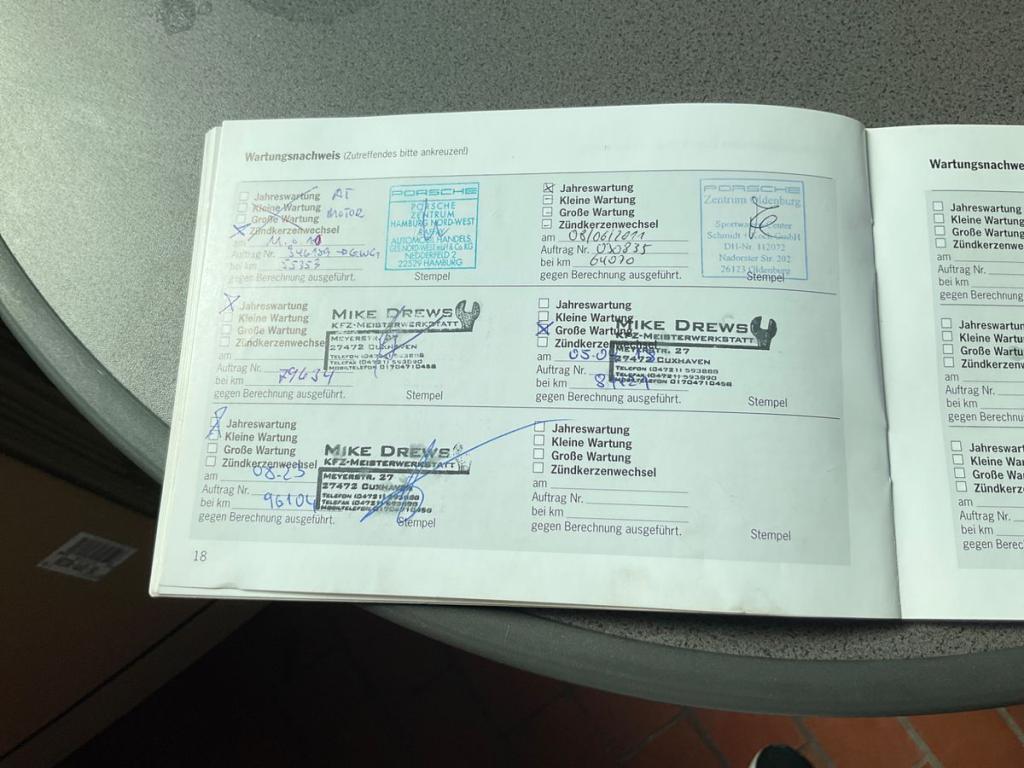 Wartungsnachweis (Zutreffendes bitte ankreuzen!)
Jahreswartung AT
Kleine Wartung
Große Wartung MOTOR
Zündkerzenwechsel
am
Auftrag Nr.
bei km 55353
gegen Berechnung ausgeführt.
PORSCHE
PORSCHE
ZENTRUM
HAMBURG NORD-WEST
AUTOMOBIL HANDELS
NEDDERFELD 2
22529 HAMBURG
Stempel
Jahreswartung
Kleine Wartung
Große Wartung
Zündkerzenwechsel
am 08/06/2011
Auftrag Nr. 070835
bei km 64070
gegen Berechnung ausgeführt.
PORSCHE
Zentrum Oldenburg
Sportwagen Center
Schmidt + Koch GmbH
DH-Nr. 112072
Nadorster Str. 202
26123 Oldenburg
Stempel
Jahreswartung
Kleine Wartung
Große Wartung
Zündkerzenwechsel
am
Auftrag Nr.
bei km 79434
gegen Berechnung ausgeführt.
MIKE DREWS
KFZ-MEISTERWERKSTATT
MEYERSTR. 27
27472 CUXHAVEN
TELEFON (04721) 593888
TELEFAX (04721) 593890
MOBILTELEFON 01704710458
Stempel
Jahreswartung
Kleine Wartung
Große Wartung
Zündkerzenwechsel
am
Auftrag Nr.
bei km
gegen Berechnung ausgeführt.
MIKE DREWS
KFZ-MEISTERWERKSTATT
MEYERSTR. 27
27472 CUXHAVEN
TELEFON (04721) 593888
TELEFAX (04721) 593890
MOBILTELEFON 01704710458
Stempel
Jahreswartung
Kleine Wartung
Große Wartung
Zündkerzenwechsel
am 08-23
Auftrag Nr.
bei km 96104
gegen Berechnung ausgeführt.
MIKE DREWS
KFZ-MEISTERWERKSTATT
MEYERSTR. 27
27472 CUXHAVEN
TELEFON (04721) 593888
TELEFAX (04721) 593890
MOBILTELEFON 01704710458
Stempel
Jahreswartung
Kleine Wartung
Große Wartung
Zündkerzenwechsel
am
Auftrag Nr.
bei km
gegen Berechnung ausgeführt.
Stempel
18
Wartungsnachwe
Jahreswartung
Kleine Wartun
Große Wartun
Zündkerzenw
am
Auftrag Nr.
bei km
gegen Berechnun
Jahreswartun
Kleine Wart
Große Wart
Zündkerze
am
Auftrag Nr.
bei km
gegen Berechnu
Jahreswart
Kleine Wa
Große Wa
Zündkerz
am
Auftrag Nr.
bei km
gegen Berec